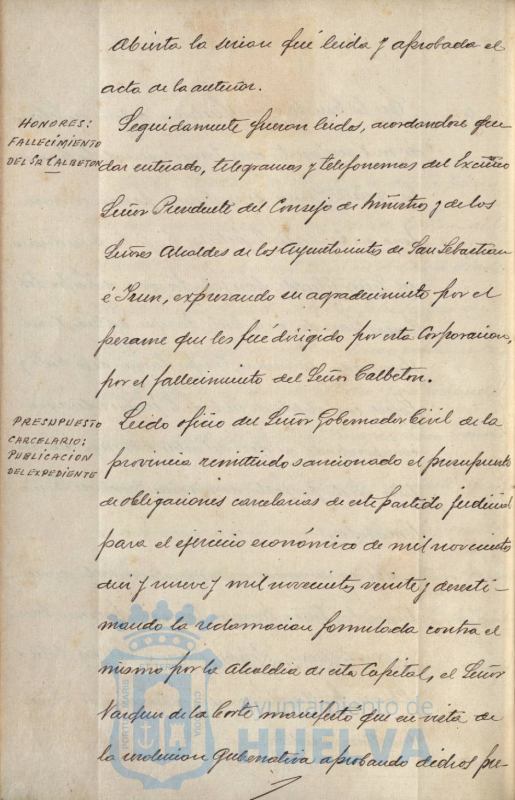 Abierta la sesion fué leida y aprobada el
acta de la anterior.
HONORES:
FALLECIMIENTO
DEL SR CALBETON
Seguidamente fueron leidos, acordandose que
dar enterado, telegramas y telefonemas del Excmo
Señor Presidente del Consejo de Miñstros y de los
Señores Alcaldes de los Ayuntamientos de San Sebastian
é Irun, expresando su agradecimiento por el
pesame que les fué dirigido por esta Corporacion,
por el fallecimiento del Señor Calbeton.
PRESUPUESTO
CARCELARIO:
PUBLICACION
DEL EXPEDIENTE
Leido oficio del Señor Gobernador Civil de la
provincia remitiendo sancionado el presupuesto
de obligaciones carcelarias de este partido judicial
para el ejercicio económico de mil novecientos
diez y nueve y mil novecientos veinte y desesti-
mando la reclamacion formulada contra el
mismo por la Alcaldia de esta Capital, el Señor
Vazquez de la Corte manifestó que en vista de
la resolucion gubernativa aprobando dichos pre-
Ayuntamiento de
HUELVA